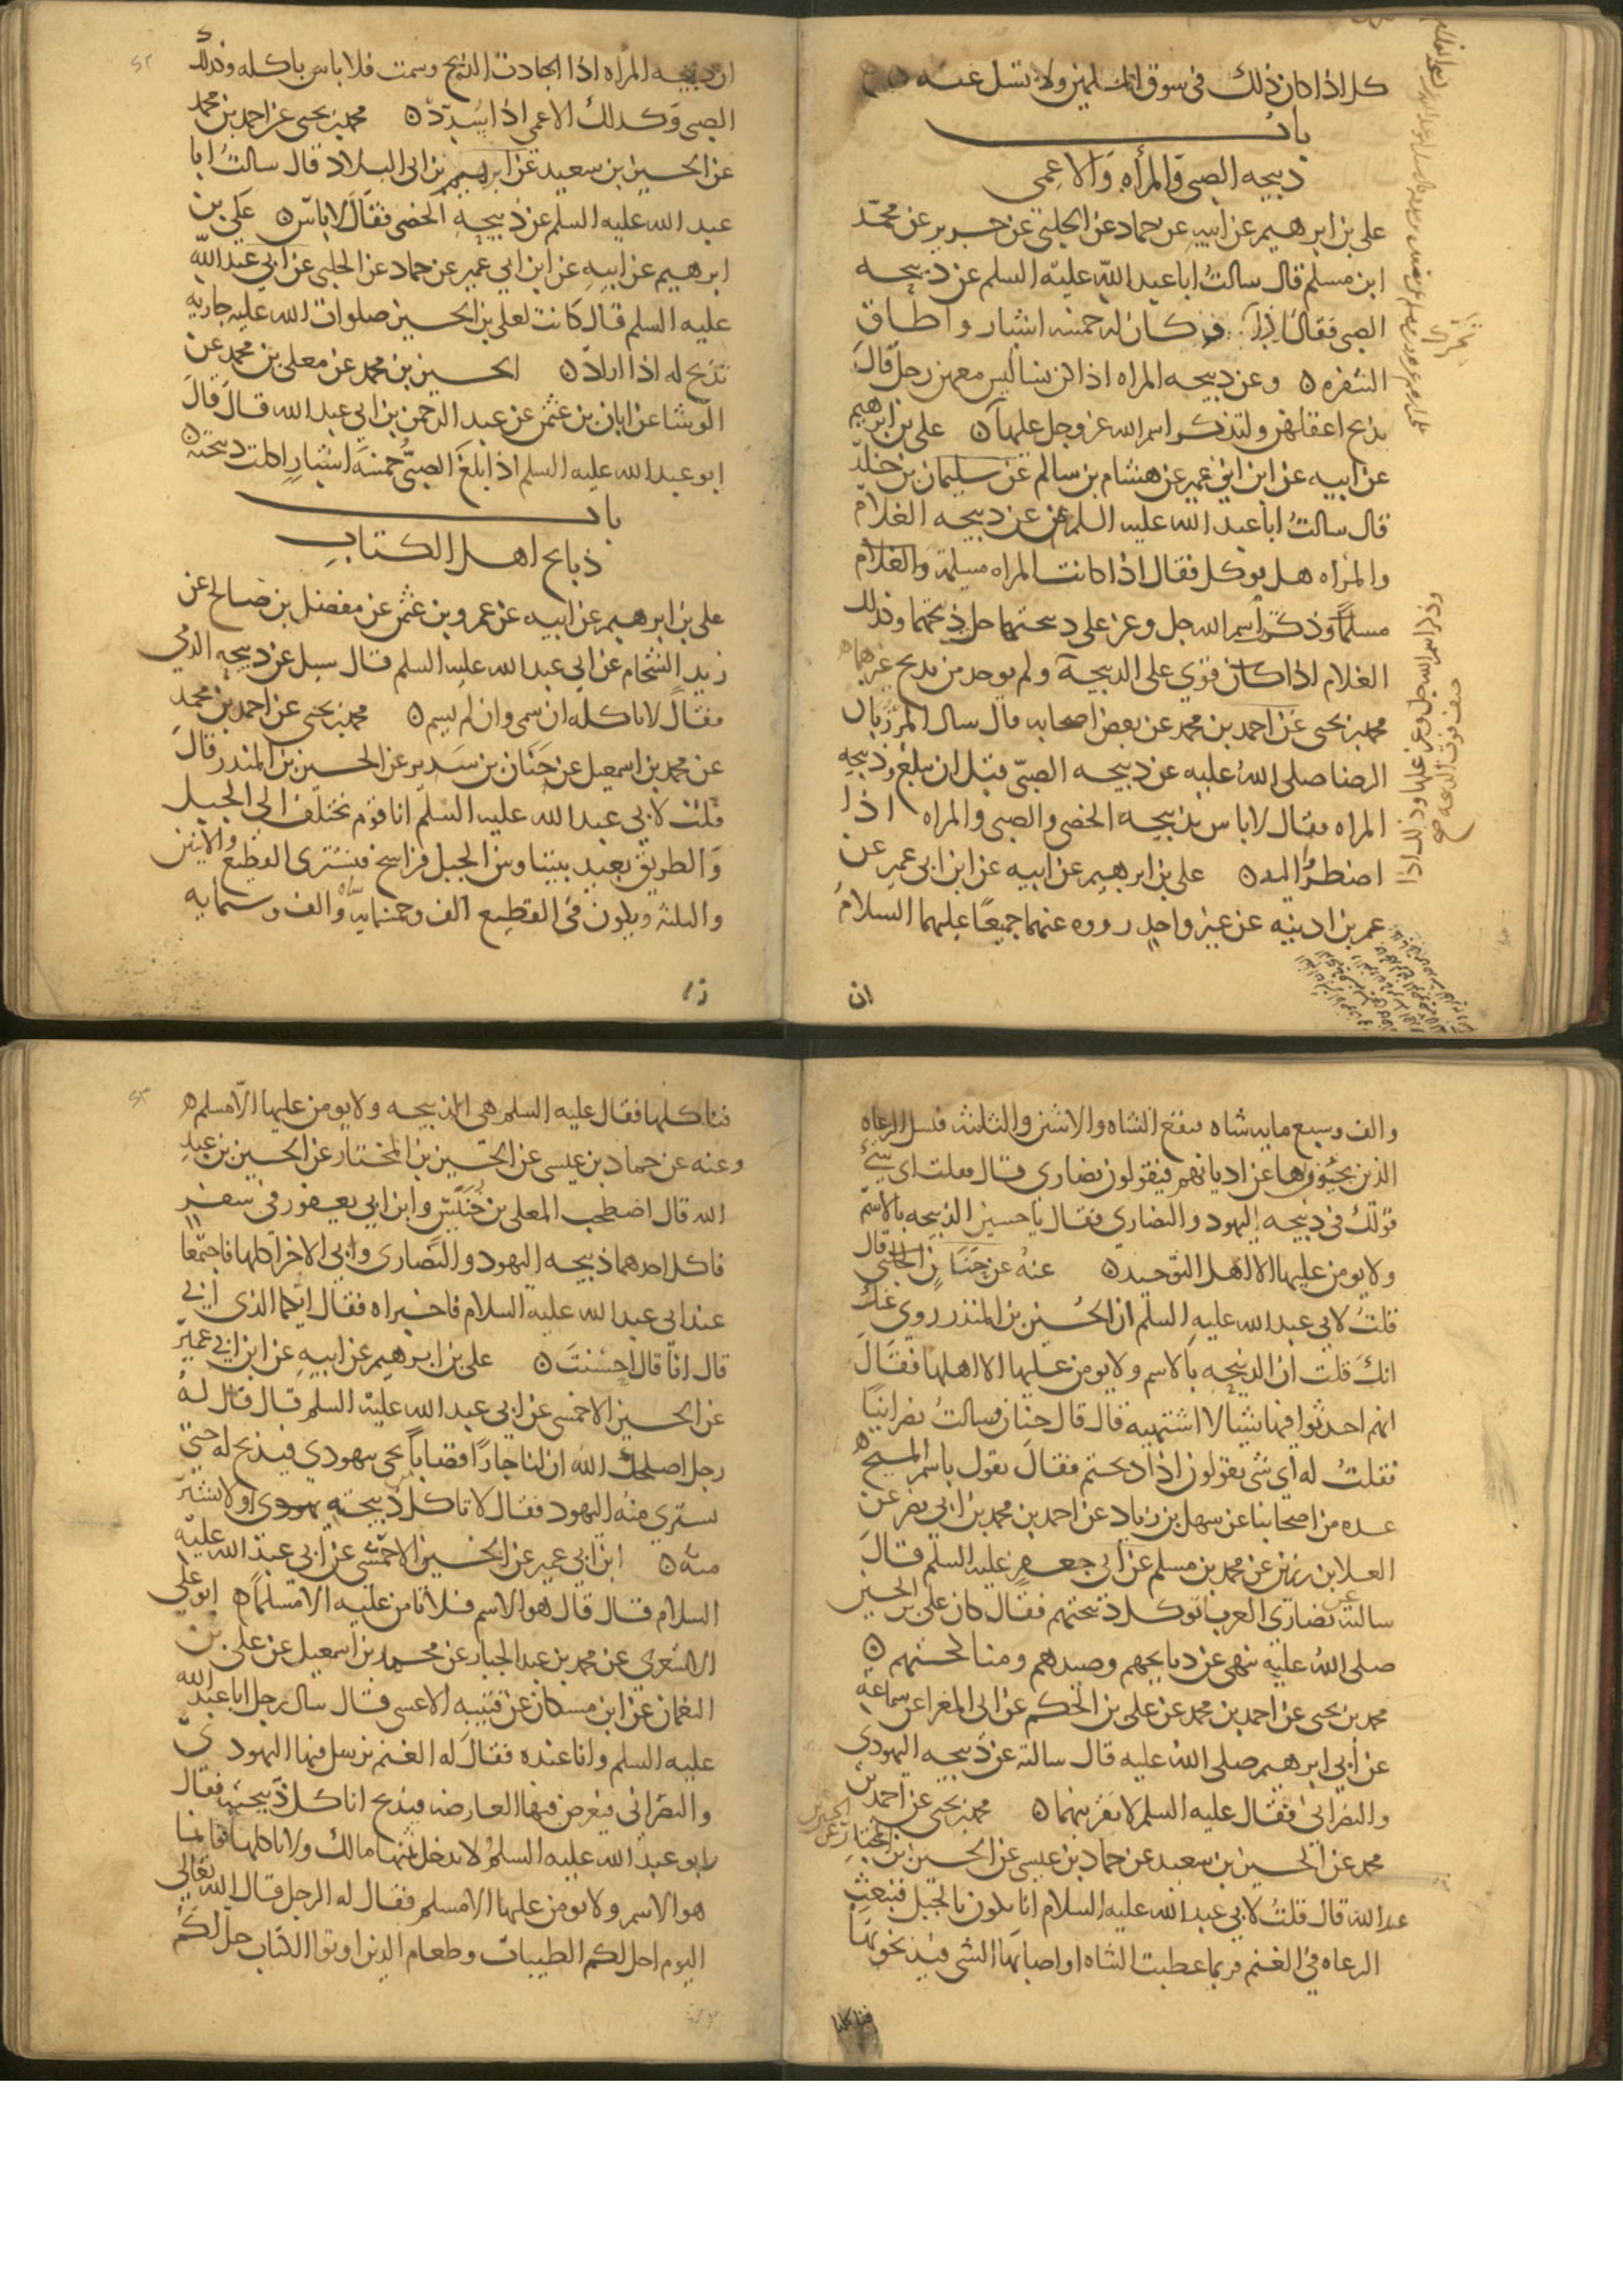 كل اذا كان ذلك فى سوق المسلمين ولا تسل عنه ۞
باب
ذبيحه الصبى والمرأه والاعمى
على بن ابرهيم عن ابيه عن حماد عن الحلبى عن حريز عن محمد
ابن مسلم قال سالتُ ابا عبد الله عليه السلم عن ذبيحه
الصبى فقال اذا كان له خمسه اشبار واطاق
الشفره ۞ وعن ذبيحه المراه اذا كن نسا ليس معهن رجل قال
تذبح اعقلهن ولتذكر اسم الله عز وجل عليها ۞ على بن ابرهيم
عن ابيه عن ابن ابى عمير عن هشام بن سالم عن سليمان بن خلد
قال سالتُ ابا عبد الله عليه السلم عن ذبيحه الغلام
والمرأه هل توكل فقال اذا كانت المراه مسلمة والغلام
مسلماً وذكرت اسم الله جل وعز على ذبيحتهما حل ذبيحتهما وذلك
الغلام اذا كان قوى على الذبيحة ولم يوجد من يذبح غيرهما
محمد بن يحيى عن احمد بن محمد عن بعض اصحابه قال سال المرزبان
الرضا صلى الله عليه عن ذبيحه الصبى قبل ان يبلغ وذبيحه
المراه فقال لا باس بذبيحه الخصى والصبى والمراه اذا
اضطرّ اليه ۞ على بن ابرهيم عن ابيه عن ابن ابى عمير عن
عمر بن اذينه عن غير واحد رووه عنهما جميعًا عليهما السلام
وذكر اسم الله جل وعز عليها وذلك اذا
ان
ان ذبيحه المرأه اذا اجادت الذبح وسمت فلا باس باكله وكذلك
الصبى وكذلك الاعمى اذا سُدّد ۞ محمد بن يحيى عن احمد بن محمد
عن الحسين بن سعيد عن ابرهيم بن ابى البلاد قال سالتُ ابا
عبد الله عليه السلم عن ذبيحه الخصى فقال لا باس ۞ على بن
ابرهيم عن ابيه عن ابن ابي عمير عن حماد عن الحلبى عن ابى عبد الله
عليه السلم قال كانت لعلى بن الحسين صلوات الله عليه جاريه
تذبح له اذا اراد ۞ الحسين بن محمد عن معلى بن محمد عن
الوشا عن ابان بن عثمن عن عبد الرحمن بن ابي عبد الله قال قال
ابو عبد الله عليه السلم اذا بلغ الصبىُّ خمسة اشبارٍ اكلت ذبيحته ۞
باب
ذبايح اهل الكتاب
على بن ابرهيم عن ابيه عن عمرو بن عثمن عن مفضل بن صالح عن
زيد الشحام عن ابى عبد الله عليه السلم قال سيل عن ذبيحه الذمى
فقال لا تاكله ان سمى وان لم يسم ۞ محمد بن يحيى عن احمد بن محمد
عن محمد بن اسمعيل عن حَنَان بن سَدير عن الحسين بن المنذر قال
قلت لابي عبد الله عليه السلم انا قوم نختلف الى الجبل
والطريق بعيد بيننا وبين الجبل فراسخ فنشترى القطيع والاثنين
والثلثه ويكون فى القطيع الف وخمسمايه شاه والف وستمايه
والف وسبع مايه شاه فتقع الشاه والاثنتين والثلثه فنسل الرعاه
الذين يجيئون بها عن اديانهم فيقولون نصارى قال فقلت اى شىء
قولك فى ذبيحه اليهود والنصارى فقال يا حسين الذبيحه بالاسم
ولا يومن عليها الا اهل التوحيد ۞ عنه عن حنان قال
قلتُ لابى عبد الله عليه السلم ان الحُسين بن المنذر روى عنك
انكَ قلت ان الذبيحه بالاسم ولا يومن عليها الا اهلها فقال
انهم احدثوا فيها شيا لا اشتهيه قال قال حنان فسالتُ نصرانيًا
فقلتُ له اى شى تقولون اذا ذبحتم فقال نقول باسم المسيح ۞
عده من اصحابنا عن سهل بن زياد عن احمد بن محمد بن ابى نصر عن
العلا بن رزين عن محمد بن مسلم عن ابى جعفر عليه السلم قال
سالته عن نصارى العرب اتوكل ذبيحتهم فقال كان على بن الحسين
صلى الله عليه ينهى عن ذبايحهم وصيدهم ومناكحتهم ۞
محمد بن يحيى عن احمد بن محمد عن على بن الحكم عن ابى المغرا عن سماعه
عن أبى ابرهيم صلى الله عليه قال سالته عن ذبيحه اليهودى
والنصرانى فقال عليه السلم لا تقربنهما ۞ محمد بن يحيى عن احمد بن
محمد عن الحسين بن سعيد عن حماد بن عيسى عن الحسين بن المختار عن الحسين بن
عبد الله قال قلتُ لابى عبد الله عليه السلام انا نكون بالجبل فنبعث
الرعاه فى الغنم فربما عطبت الشاه او اصابها الشى فيذبحونها
فناكلها
فناكلها فقال عليه السلم هى الذبيحه ولا يومن عليها الا مسلم ۞
وعنه عن حماد بن عيسى عن الحسين بن المختار عن الحسين بن عبد
الله قال اصطحب المعلى بن خنيس وابن ابى يعفور فى سفر
فاكل احدهما ذبيحه اليهود والنصارى وابى الاخر اكلها فاجتمعا
عند ابى عبد الله عليه السلام فاخبراه فقال ايكما الذى ابى
قال انا قال احسنتَ ۞ على بن ابرهيم عن ابيه عن ابن ابى عمير
عن الحسين الاحمسى عن ابى عبد الله عليه السلم قال قال لهُ
رجل اصلحك الله ان لنا جارًا قصاباً يجى بيهودي فيذبح له حتى
يشترى منه اليهود فقال لا تاكل ذبيحته ولا تشتر
منه ۞ ابن ابي عمير عن الحسين الاحمسى عن ابى عبد الله عليه
السلام قال قال هو الاسم فلا تامن عليه الا مسلماً ۞ ابو على
الاشعرى عن محمد بن عبد الجبار عن محمد بن اسمعيل عن على بن
النعمان عن ابن مسكان عن قتيبه الاعشى قال سال رجل ابا عبد الله
عليه السلم وانا عنده فقال له الغنم نرسل فيها اليهودى
والنصرانى فيعرض فيها العارضه فيذبح اناكل ذبيحته فقال
ابو عبد الله عليه السلم لا تدخل ثمنها مالك ولا تاكلها فانما
هو الاسم ولا يومن عليها الا مسلم فقال له الرجل قال الله تعالى
اليوم احل لكم الطيبات وطعام الذين اوتوا الكتاب حل لكم